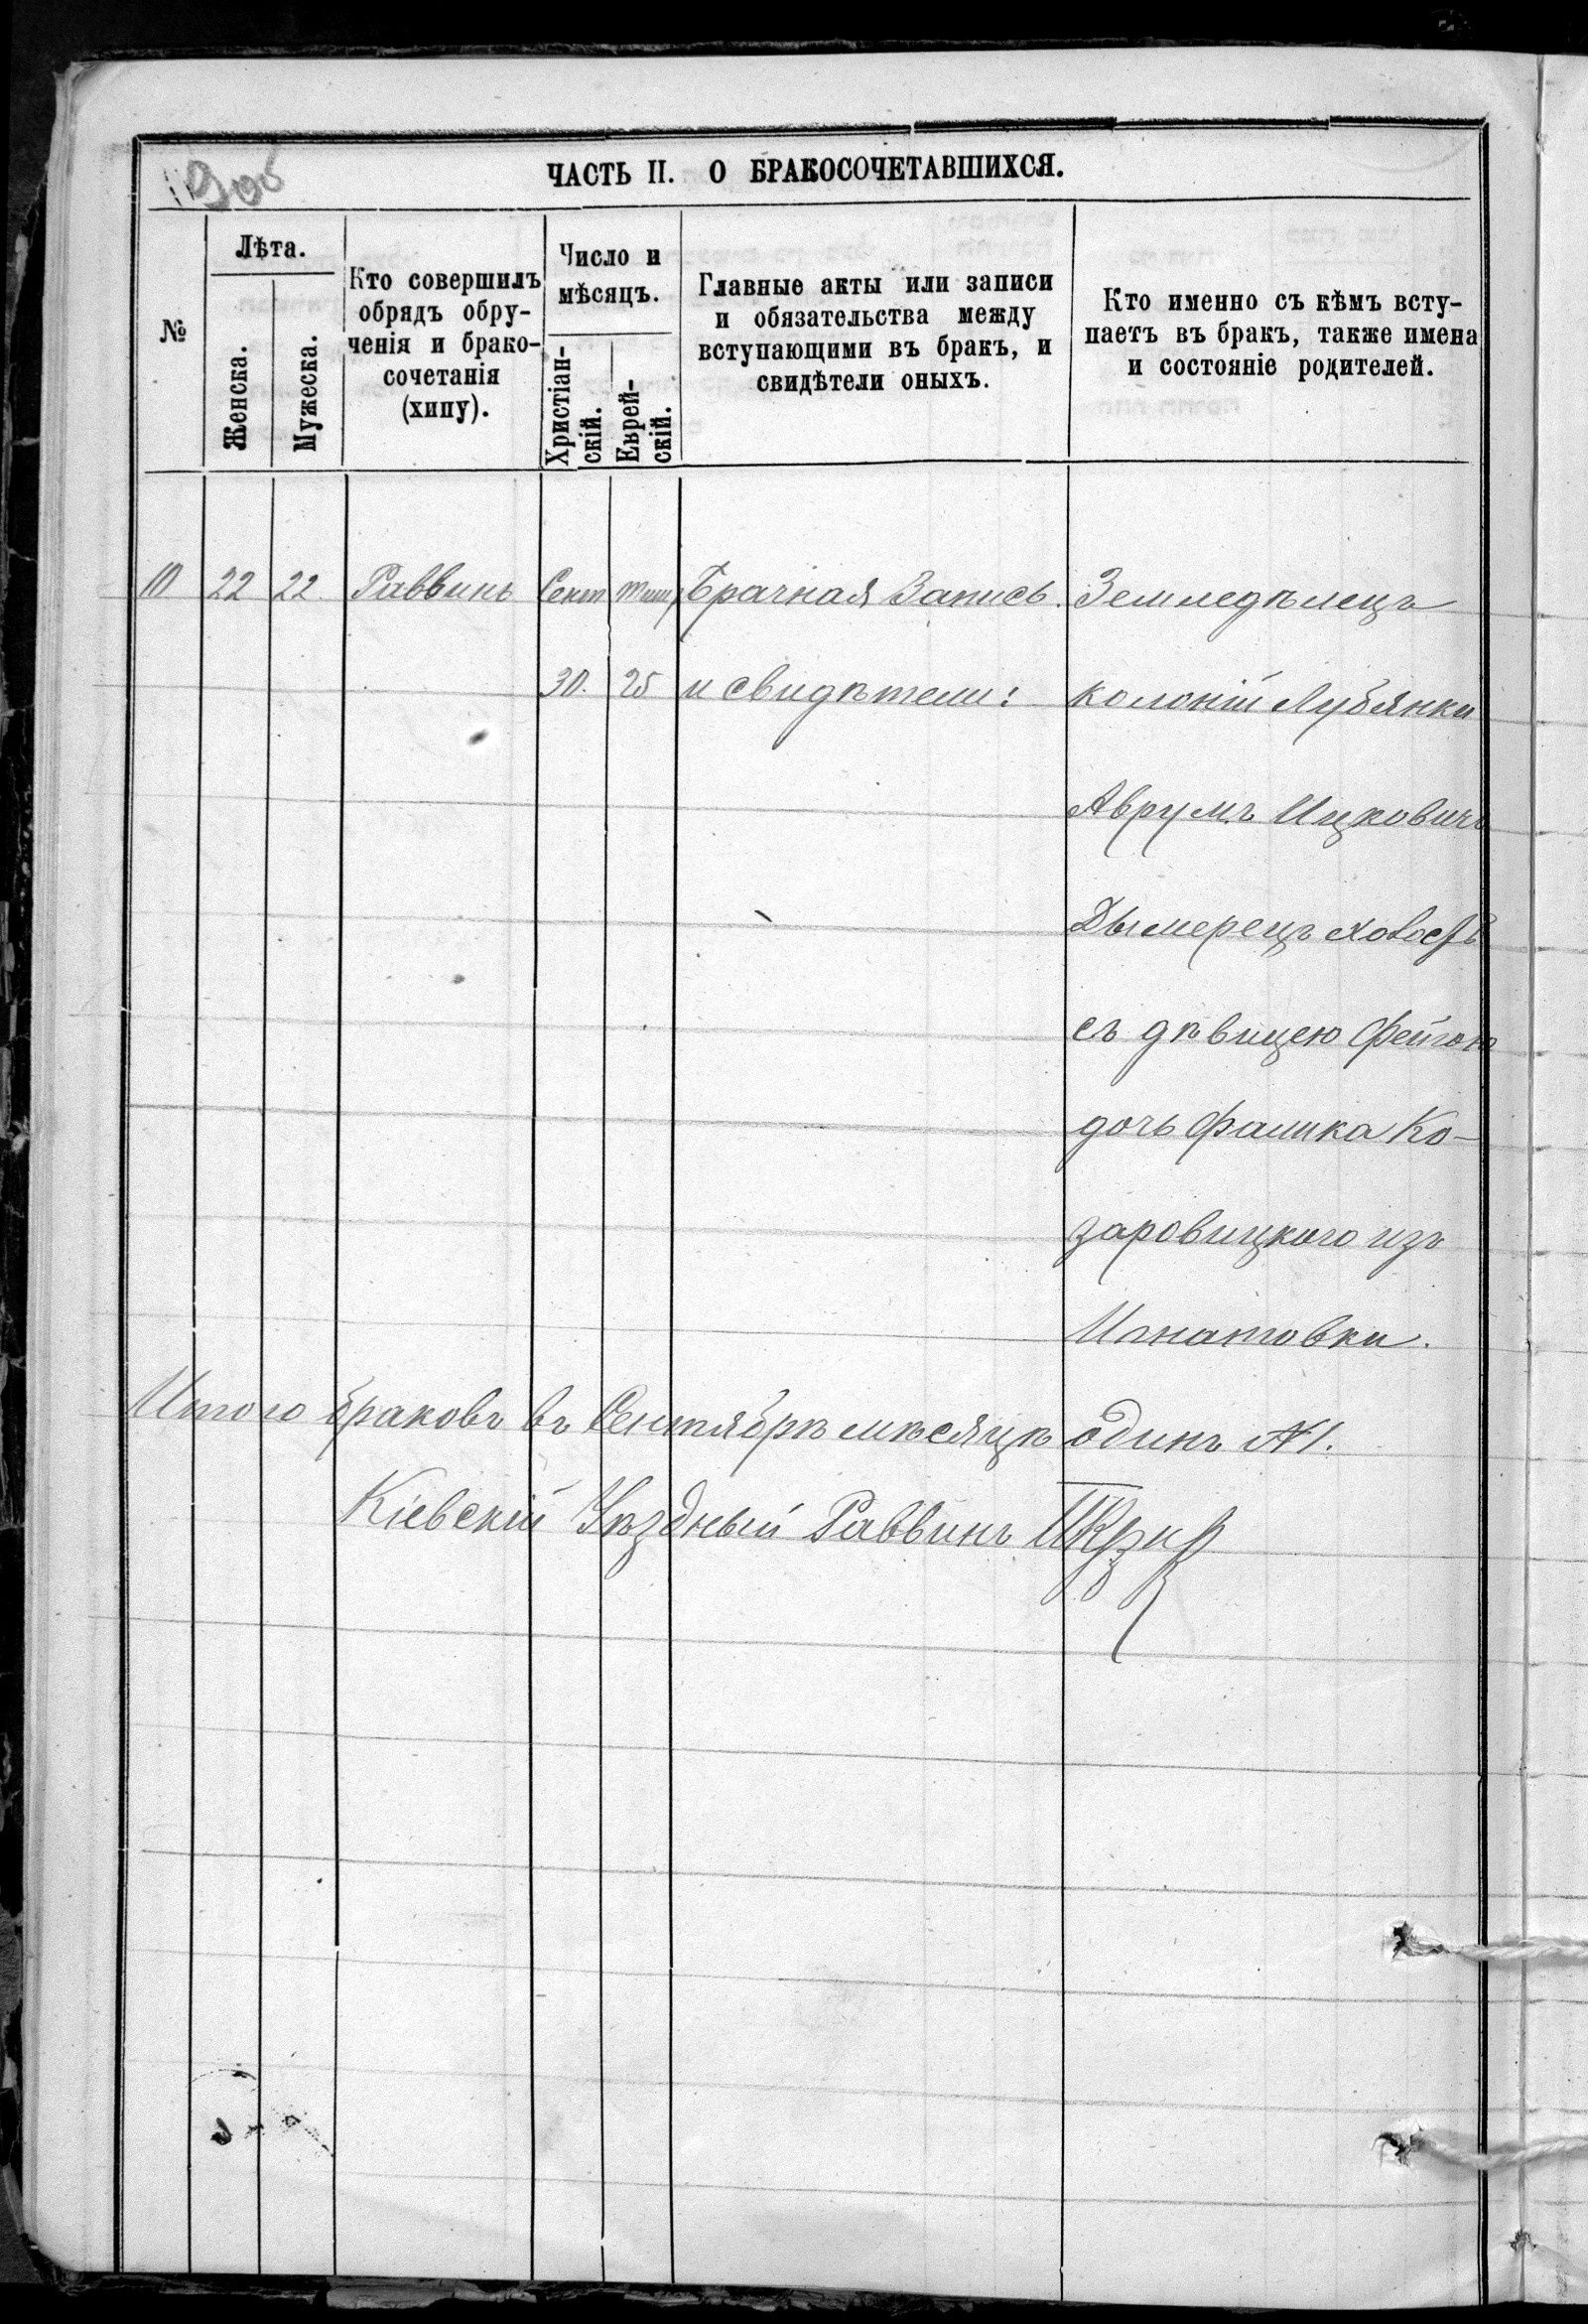 ЧАСТЬ II. О БРАКОСОЧЕТАВШИХСЯ.
№
Лѣта.
Женска.
Мужеска.
Кто совершилъ
обрядъ обру-
ченія и брако-
сочетанія
(хипу).
Число и
мѣсяцъ.
Христіан-
скій.
Еврей-
скій.
Главные акты или записи
и обязательства между
вступающими въ бракъ, и
свидѣтели оныхъ.
Кто именно съ кѣмъ всту-
паетъ въ бракъ, также имена
и состояніе родителей.
10 22 22. Раввинъ Сент Тиш Брачная Запись. Земледѣлецъ
30. 25 и свидѣтели: колоніи Лубянки
Аврумъ Ицковичъ
Дымерецъ холост
съ дѣвицею Фейгою
дочь Фалика Ко-
заровицкого изъ
Игнатовки.
Итого браковъ въ Сентябрѣ мѣсяцѣ одинъ №1.
Кіевскій Уѣздный Раввинъ